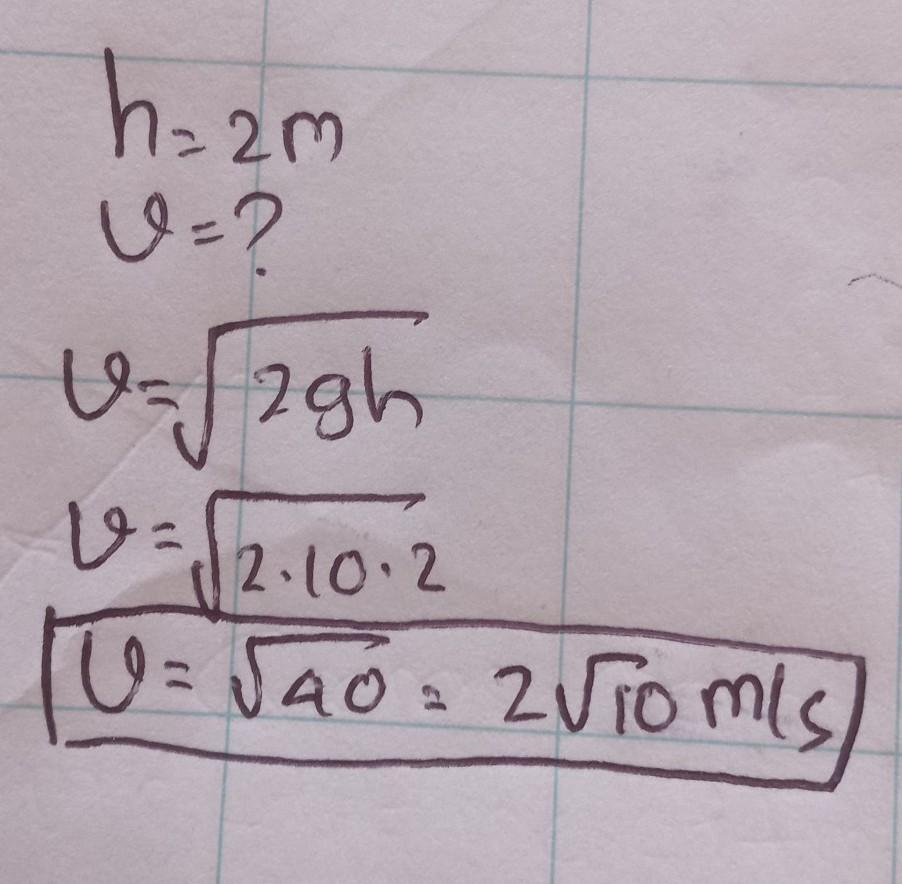 h = 2m
v = ?
v = √2gh
v = √2.10.2
v = √40 = 2√10 m/s